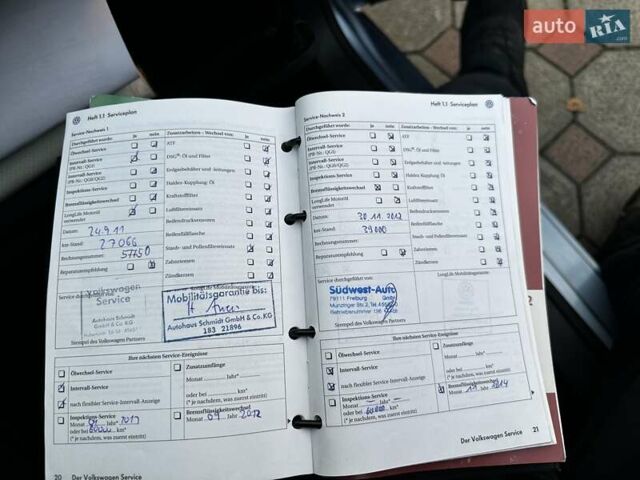 auto RIA .com
Heft 1.1 · Serviceplan
Service-Nachweis 1
Durchgeführt wurde: ja nein
Ölwechsel-Service
Intervall-Service
(PR-Nr.: QG1)
Intervall-Service
(PR-Nr.: QG0/QG2)
Inspektions-Service
Bremsflüssigkeitswechsel
LongLife Motoröl
verwendet
Datum: 24.9.11
km-Stand: 27066
Rechnungsnummer: 57750
Reparaturempfehlung
Zusatzarbeiten - Wechsel von: ja nein
ATF
DSG® Öl und Filter
Erdgasbehälter und -leitungen
Haldex-Kupplung: Öl
Kraftstofffilter
Bremsflüssigkeit
Reifendruckssensoren
Reifenfüllflasche
Staub- und Pollenfiltereinsatz
Zahnriemen
Zündkerzen
Service durchgeführt
Volkswagen
Service
Autohaus Schmidt
GmbH & Co.KG
Stempel des Volkswagen Partners
LongLife Mobilitätsgarantie
Mobilitätsgarantie bis:
Autohaus Schmidt GmbH & Co. KG
183 21896
Ihre nächsten Service-Ereignisse
Ölwechsel-Service
Intervall-Service
nach flexibler Service-Intervall-Anzeige
Inspektions-Service
Monat Jahr* 2013
oder bei km*
(* je nachdem, was zuerst eintritt)
Zusatzumfänge
Monat Jahr*
oder bei km*
(* je nachdem, was zuerst eintritt)
Bremsflüssigkeitswechsel
Monat 09 Jahr 2012
20 Der Volkswagen Service
Heft 1.1 · Serviceplan
Service-Nachweis 2
Durchgeführt wurde: ja nein
Ölwechsel-Service
Intervall-Service
(PR-Nr.: QG1)
Intervall-Service
(PR-Nr.: QG0/QG2)
Inspektions-Service
Bremsflüssigkeitswechsel
LongLife Motoröl
verwendet
Datum: 30 11 2012
km-Stand: 39000
Rechnungsnummer:
Reparaturempfehlung
Zusatzarbeiten - Wechsel von: ja nein
ATF
DSG® Öl und Filter
Erdgasbehälter und -leitungen
Haldex-Kupplung: Öl
Kraftstofffilter
Reifendruckssensoren
Reifenfüllflasche
Staub- und Pollenfiltereinsatz
Zahnriemen
Zündkerzen
Service durchgeführt von:
Südwest-Auto
79111 Freiburg GmbH
Munzinger Str. 2, Tel.
Betriebsnummer 136
Stempel des Volkswagen Partners
LongLife Mobilitätsgarantie
Ihre nächsten Service-Ereignisse
Ölwechsel-Service
Intervall-Service
nach flexibler Service-Intervall-Anzeige
Inspektions-Service
Monat Jahr*
oder bei km*
(* je nachdem, was zuerst eintritt)
Zusatzumfänge
Monat Jahr*
oder bei km*
(* je nachdem, was zuerst eintritt)
Bremsflüssigkeitswechsel
Monat 11 Jahr 2014
Der Volkswagen Service 21
2